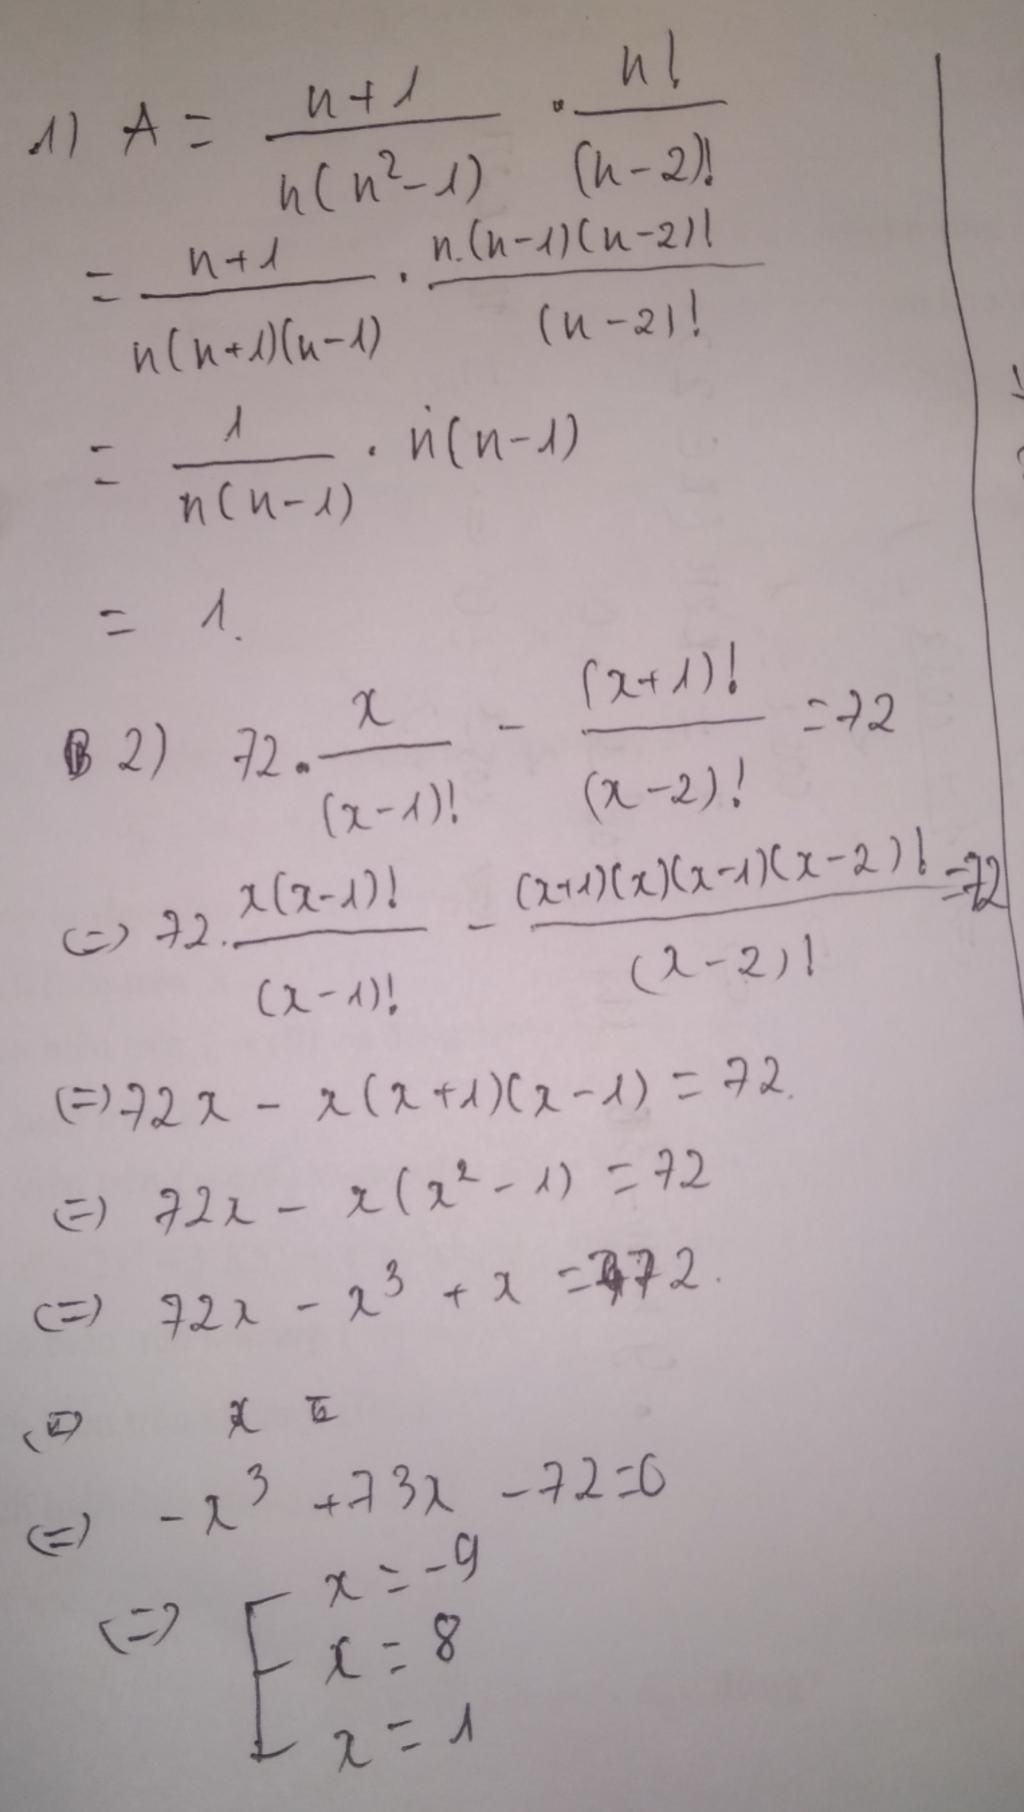 1) A = (n+1)/(n(n²-1)) · n!/(n-2)!
= (n+1)/(n(n+1)(n-1)) · n.(n-1)(n-2)!/(n-2)!
= 1/(n(n-1)) · n(n-1)
= 1.
2) 72 . x/(x-1)! - (x+1)!/(x-2)! = 72
(=) 72. x(x-1)!/(x-1)! - (x+1)(x)(x-1)(x-2)!/(x-2)! = 72
(=) 72x - x(x+1)(x-1) = 72.
(=) 72x - x(x²-1) = 72
(=) 72x - x³ + x = 72.
(=) x =
(=) -x³ +73x -72=0
(=) [ x = -9
x = 8
x = 1